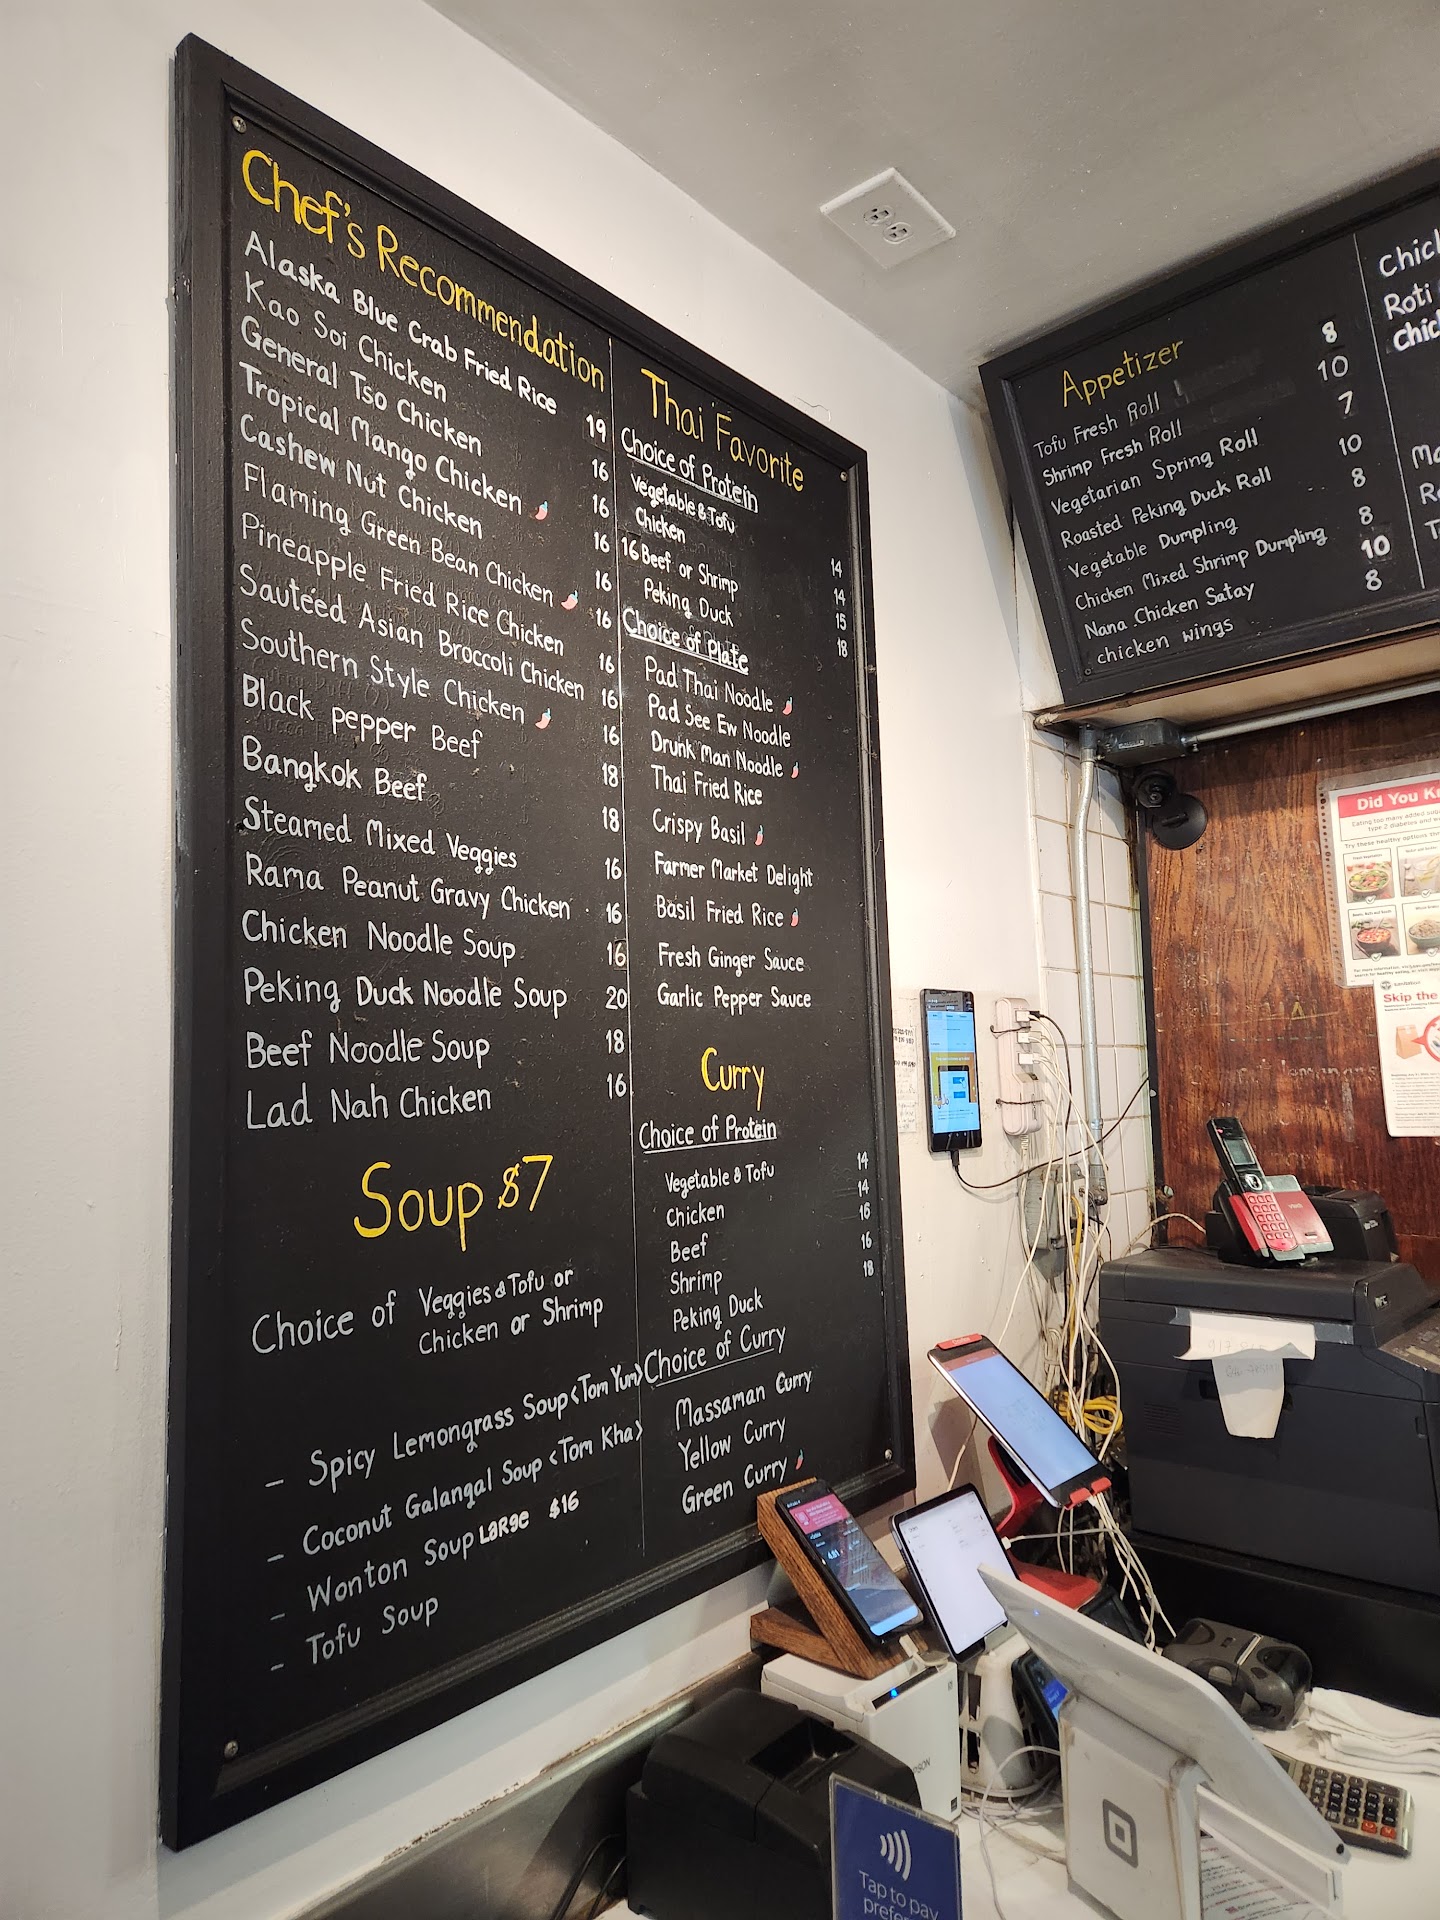 Chef's Recommendation
Alaska Blue Crab Fried Rice 19
Kao Soi Chicken 16
General Tso Chicken 16
Tropical Mango Chicken 16
Cashew Nut Chicken 16
Flaming Green Bean Chicken 16
Pineapple Fried Rice Chicken 16
Sautéed Asian Broccoli Chicken 16
Southern Style Chicken 16
Black pepper Beef 18
Bangkok Beef 18
Steamed Mixed Veggies 16
Rama Peanut Gravy Chicken 16
Chicken Noodle Soup 16
Peking Duck Noodle Soup 20
Beef Noodle Soup 18
Lad Nah Chicken 16
Soup $7
Choice of Veggies & Tofu or
Chicken or Shrimp
- Spicy Lemongrass Soup <Tom Yum>
- Coconut Galangal Soup <Tom Kha>
- Wonton Soup LARGE $16
- Tofu Soup
Thai Favorite
Choice of Protein
Vegetable & Tofu 14
Chicken 14
16 Beef or Shrimp 15
Peking Duck 18
Choice of Plate
Pad Thai Noodle
Pad See Ew Noodle
Drunk Man Noodle
Thai Fried Rice
Crispy Basil
Farmer Market Delight
Basil Fried Rice
Fresh Ginger Sauce
Garlic Pepper Sauce
Curry
Choice of Protein
Vegetable & Tofu 14
Chicken 14
Beef 16
Shrimp 16
Peking Duck 18
Choice of Curry
Massaman Curry
Yellow Curry
Green Curry
Appetizer
Tofu Fresh Roll 8
Shrimp Fresh Roll 10
Vegetarian Spring Roll 7
Roasted Peking Duck Roll 10
Vegetable Dumpling 8
Chicken Mixed Shrimp Dumpling 8
Nana Chicken Satay 10
chicken wings 8
Roti
Did You
Eating too many added
type 2 diabetes and
Try these healthy options
Skip the
Tap to pay